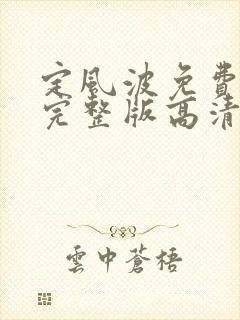 定风波免費
完整版高清
雲中蒼梧